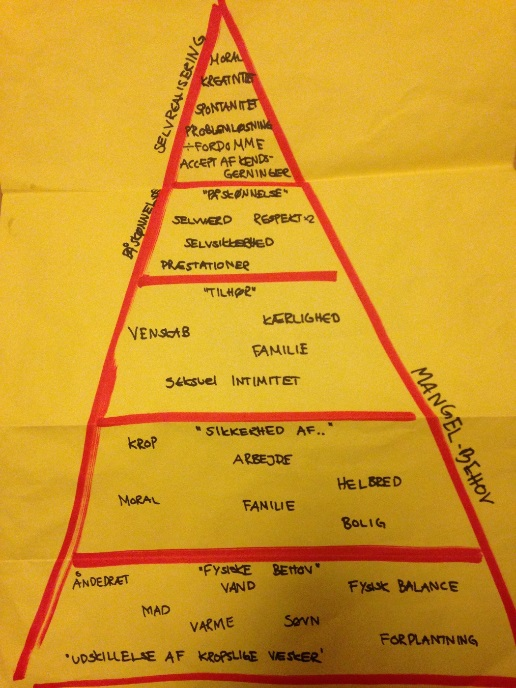 SELVREALISERING
MORAL
KREATIVITET
SPONTANITET
PROBLEMLØSNING
÷FORDOMME
ACCEPT AF KENDS-
GERNINGER
PÅSKØNNELSE
"PÅSKØNNELSE"
SELVVÆRD RESPEKT×2
SELVSIKKERHED
PRÆSTATIONER
"TILHØR"
KÆRLIGHED
VENSKAB
FAMILIE
SEKSUEL INTIMITET
MANGEL-BEHOV
"SIKKERHED AF.."
KROP
ARBEJDE
HELBRED
MORAL
FAMILIE
BOLIG
"FYSISKE BEHOV"
ÅNDEDRÆT
VAND
FYSISK BALANCE
MAD
VARME
SØVN
FORPLANTNING
"UDSKILLELSE AF KROPSLIGE VÆSKER"